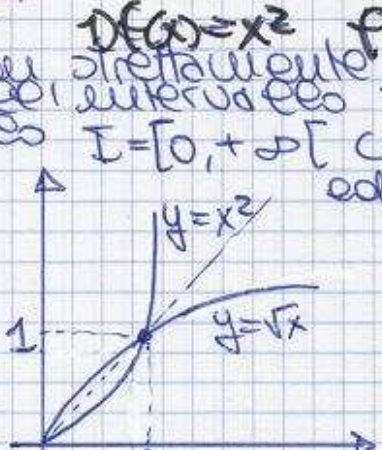 1) f(x)=x²
strettamente
intervallo
I=[0,+∞[
y=x²
1
y=√x